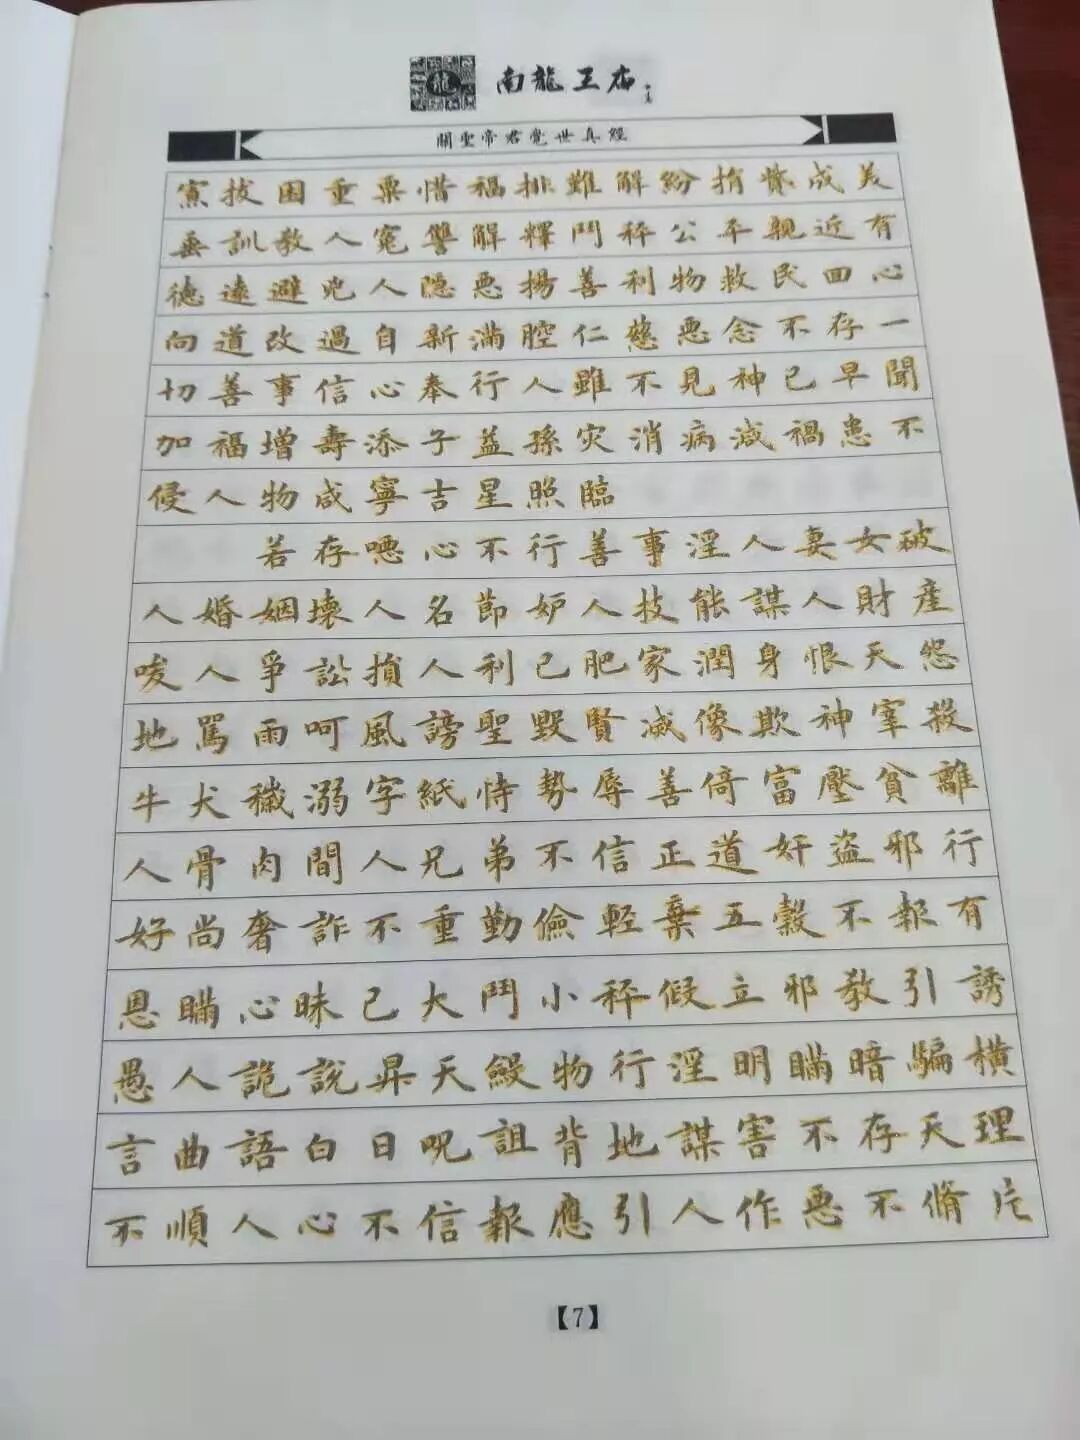 龍 南龍王府
關聖帝君覺世真經
窻拔困重粟惜福排難解紛捐貲成美
垂訓教人寃讐解釋鬥秤公平親近有
德遠避兇人隱惡揚善利物救民回心
向道改過自新滿腔仁慈惡念不存一
切善事信心奉行人雖不見神已早聞
加福增壽添子益孫灾消病減禍患不
侵人物咸寧吉星照臨
若存噁心不行善事淫人妻女破
人婚姻壞人名節妒人技能謀人財産
唆人爭訟損人利己肥家潤身恨天怨
地罵雨呵風謗聖毀賢滅像欺神宰殺
牛犬穢溺字紙恃勢辱善倚富壓貧離
人骨肉間人兄弟不信正道奸盜邪行
好尚奢詐不重勤儉輕棄五穀不報有
恩瞞心昧己大鬥小秤假立邪教引誘
愚人詭說昇天斂物行淫明瞞暗騙橫
言曲語白日呪詛背地謀害不存天理
不順人心不信報應引人作惡不脩片
【7】